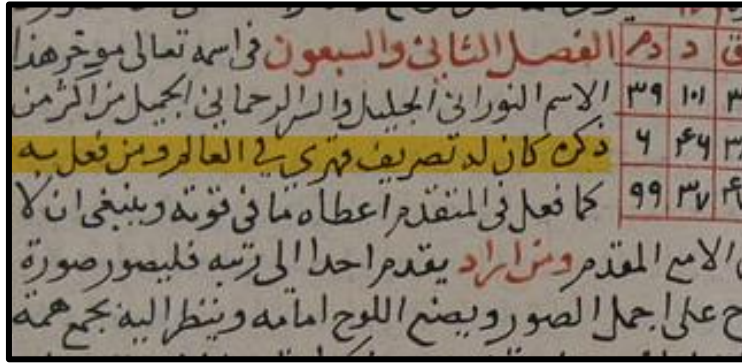 الفصل الثاني والسبعون في اسمه تعالى موخر هذا
الاسم النوراني الجليل والسر الرحماني الجميل من اكثر من
ذكره كان له تصريف قهري في العالم ومن فعل به
كما فعل في المتقدم اعطاه ما في قوته وينبغي ان لا
الاسم المقدم ومن اراد يقدم احدا الى رتبه فليصور صورة
على اجمل الصور ويضع اللوح امامه وينظر اليه بجمع همة
د
٣٩ ١٠١
٦ ٤٦
٩٩ ٣٧